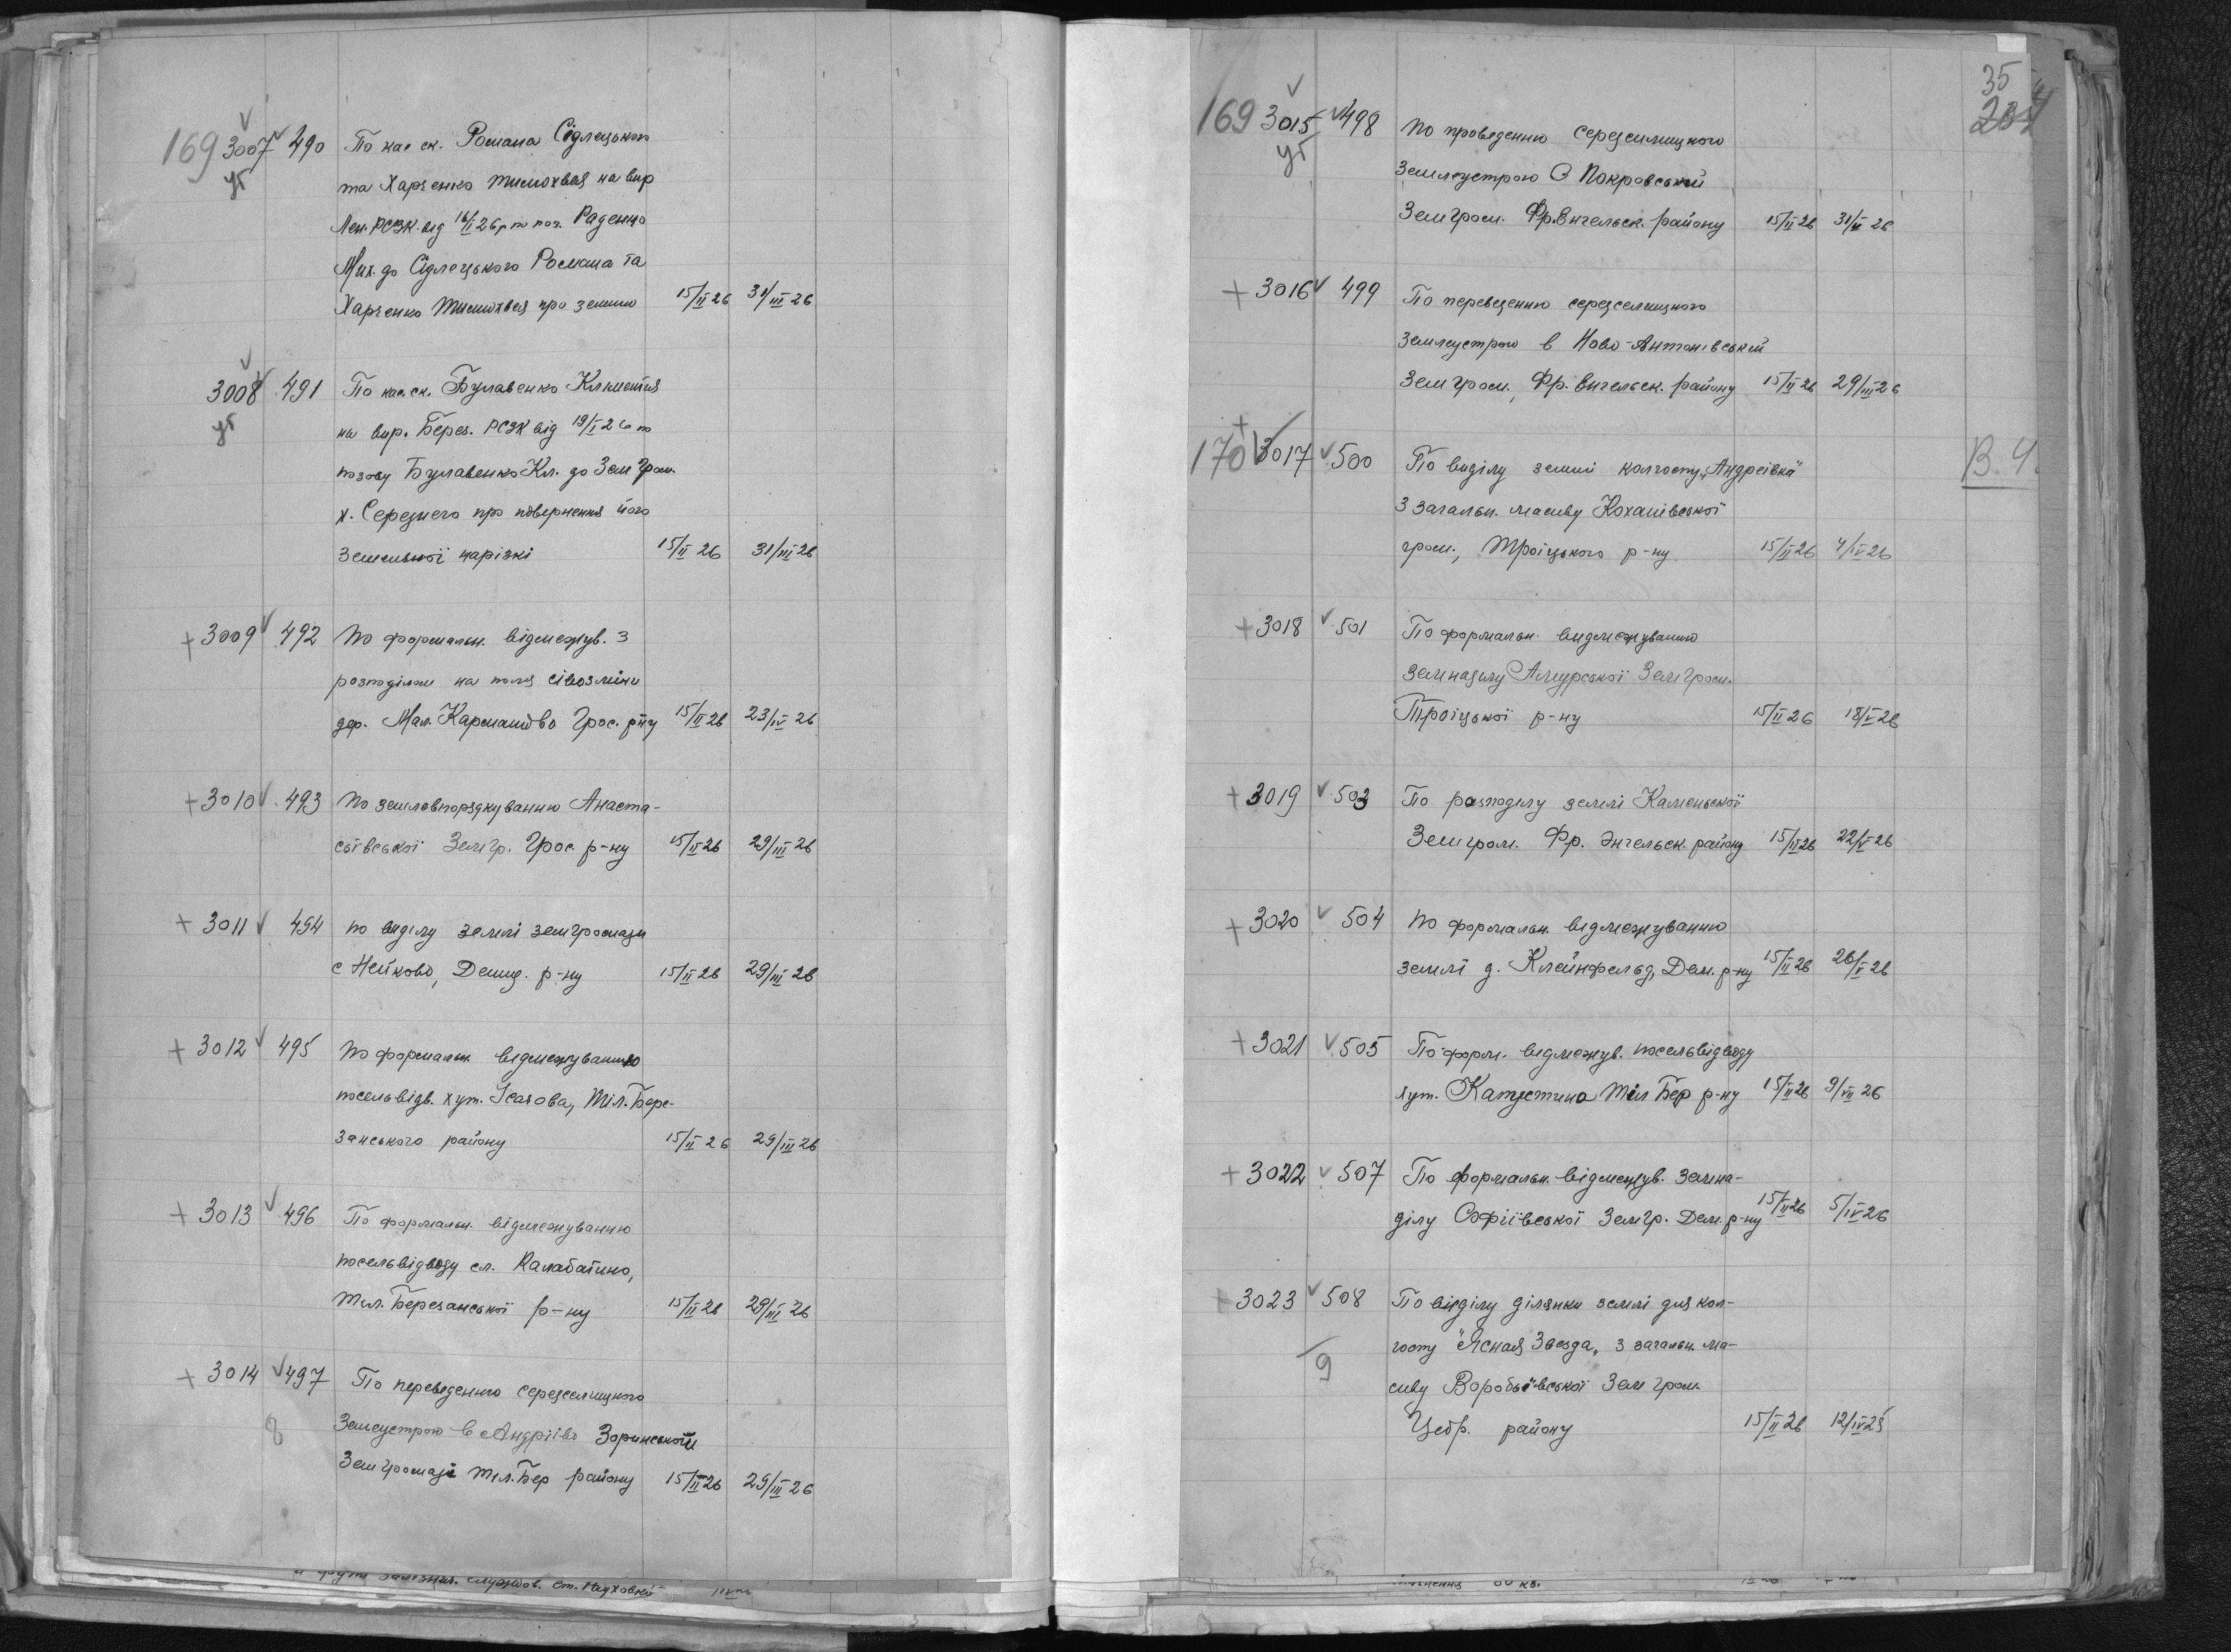 169 3007 490 По кас ск. Романа Сідлецького
уб та Харченко Тимохвея на вир
Лен. РСЗК від 16/I 26 р по поз. Раденко
Мих. до Сідлецького Романа та
Харченко Тимохвея про землю 15/II 26 31/III 26
3008 491 По кас. ск. Булавенко Климентия
уб на вир. Берез. РСЗК від 19/I 26 по
позову Булавенко Кл. до Зем Гром.
х. Середнего про повернення його
земельної нарізкі 15/II 26 31/III 26
+ 3009 492 По формальн. відмежув. з
розподілом на поля сівозміни
дер. Мал. Карманово Грос. р-ну 15/II 26 23/IV 26
+ 3010 493 По землевпорядкуванню Анаста-
сіївської Земгр. Грос. р-ну 15/II 26 29/III 26
+ 3011 494 по виділу землі земгромади
с Нейково, Демид. р-ну 15/II 26 29/III 26
+ 3012 495 По формальн відмежуванню
посельвідв. хут. Ісаєва, Тіл. Бере-
занського району 15/II 26 29/III 26
+ 3013 496 По формальн. відмежуванню
посельвідводу сл. Калабатино,
Тил. Березанської р-ну 15/II 26 29/III 26
+ 3014 497 По переведенню середселищного
8 Земеустрою в Андріїво Зоринській
Земгромаді Тіл. Бер району 15/II 26 29/III 26
35
169 3015 498 По проведенню середселищного
уб Землеустрою О Покровській
Земгром. Фр. Енгельск. району 15/II 26 31/III 26
+ 3016 499 По переведенню середселищного
землеустрою в Ново-Антонівській
Земгром., Фр. Енгельск. району 15/II 26 29/III 26
+
170 3017 500 По виділу землі колгоспу "Андреівка" В. Ч.
З загальн. масиву Коханівської
гром., Троіцького р-ну 15/II 26 4/IV 26
+ 3018 501 По формальн. видмежуванню
земнаділу Амурської Земгром.
Троіцької р-ну 15/II 26 18/V 26
+ 3019 503 По розподілу землі Каменьської
Земгром. Фр. Энгельск. району 15/II 26 22/V 26
+ 3020 504 по формальн. видмежуванню
землі д. Клейнфельд, Дем. р-ну 15/II 26 26/V 26
+ 3021 505 По форм. видмежув. посельвідводу
хут. Катустино Тіл Бер р-ну 15/II 26 9/VII 26
+ 3022 507 По формальн. відмежув. земна-
ділу Софіївської Земгр. Дем. р-ну 15/II 26 5/IV 26
+ 3023 508 По виділу ділянки землі для кол-
госпу "Ясная Звезда" з загальн. ма-
9 сиву Воробьївської Зем гром.
Цебр. району 15/II 26 12/IV 25